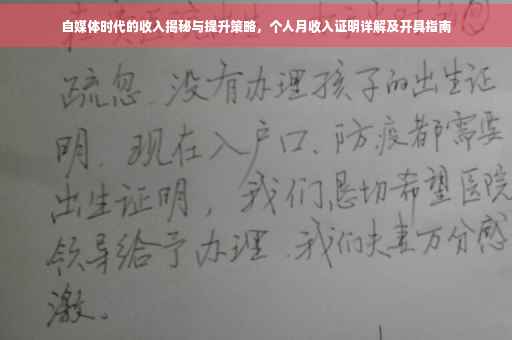 自媒体时代的收入揭秘与提升策略，个人月收入证明详解及开具指南
疏忽、没有办理孩子的出生证
明、现在入户口、防疫都需要
出生证明，我们恳切希望医院
领导给予办理、我们夫妻万分感
激。